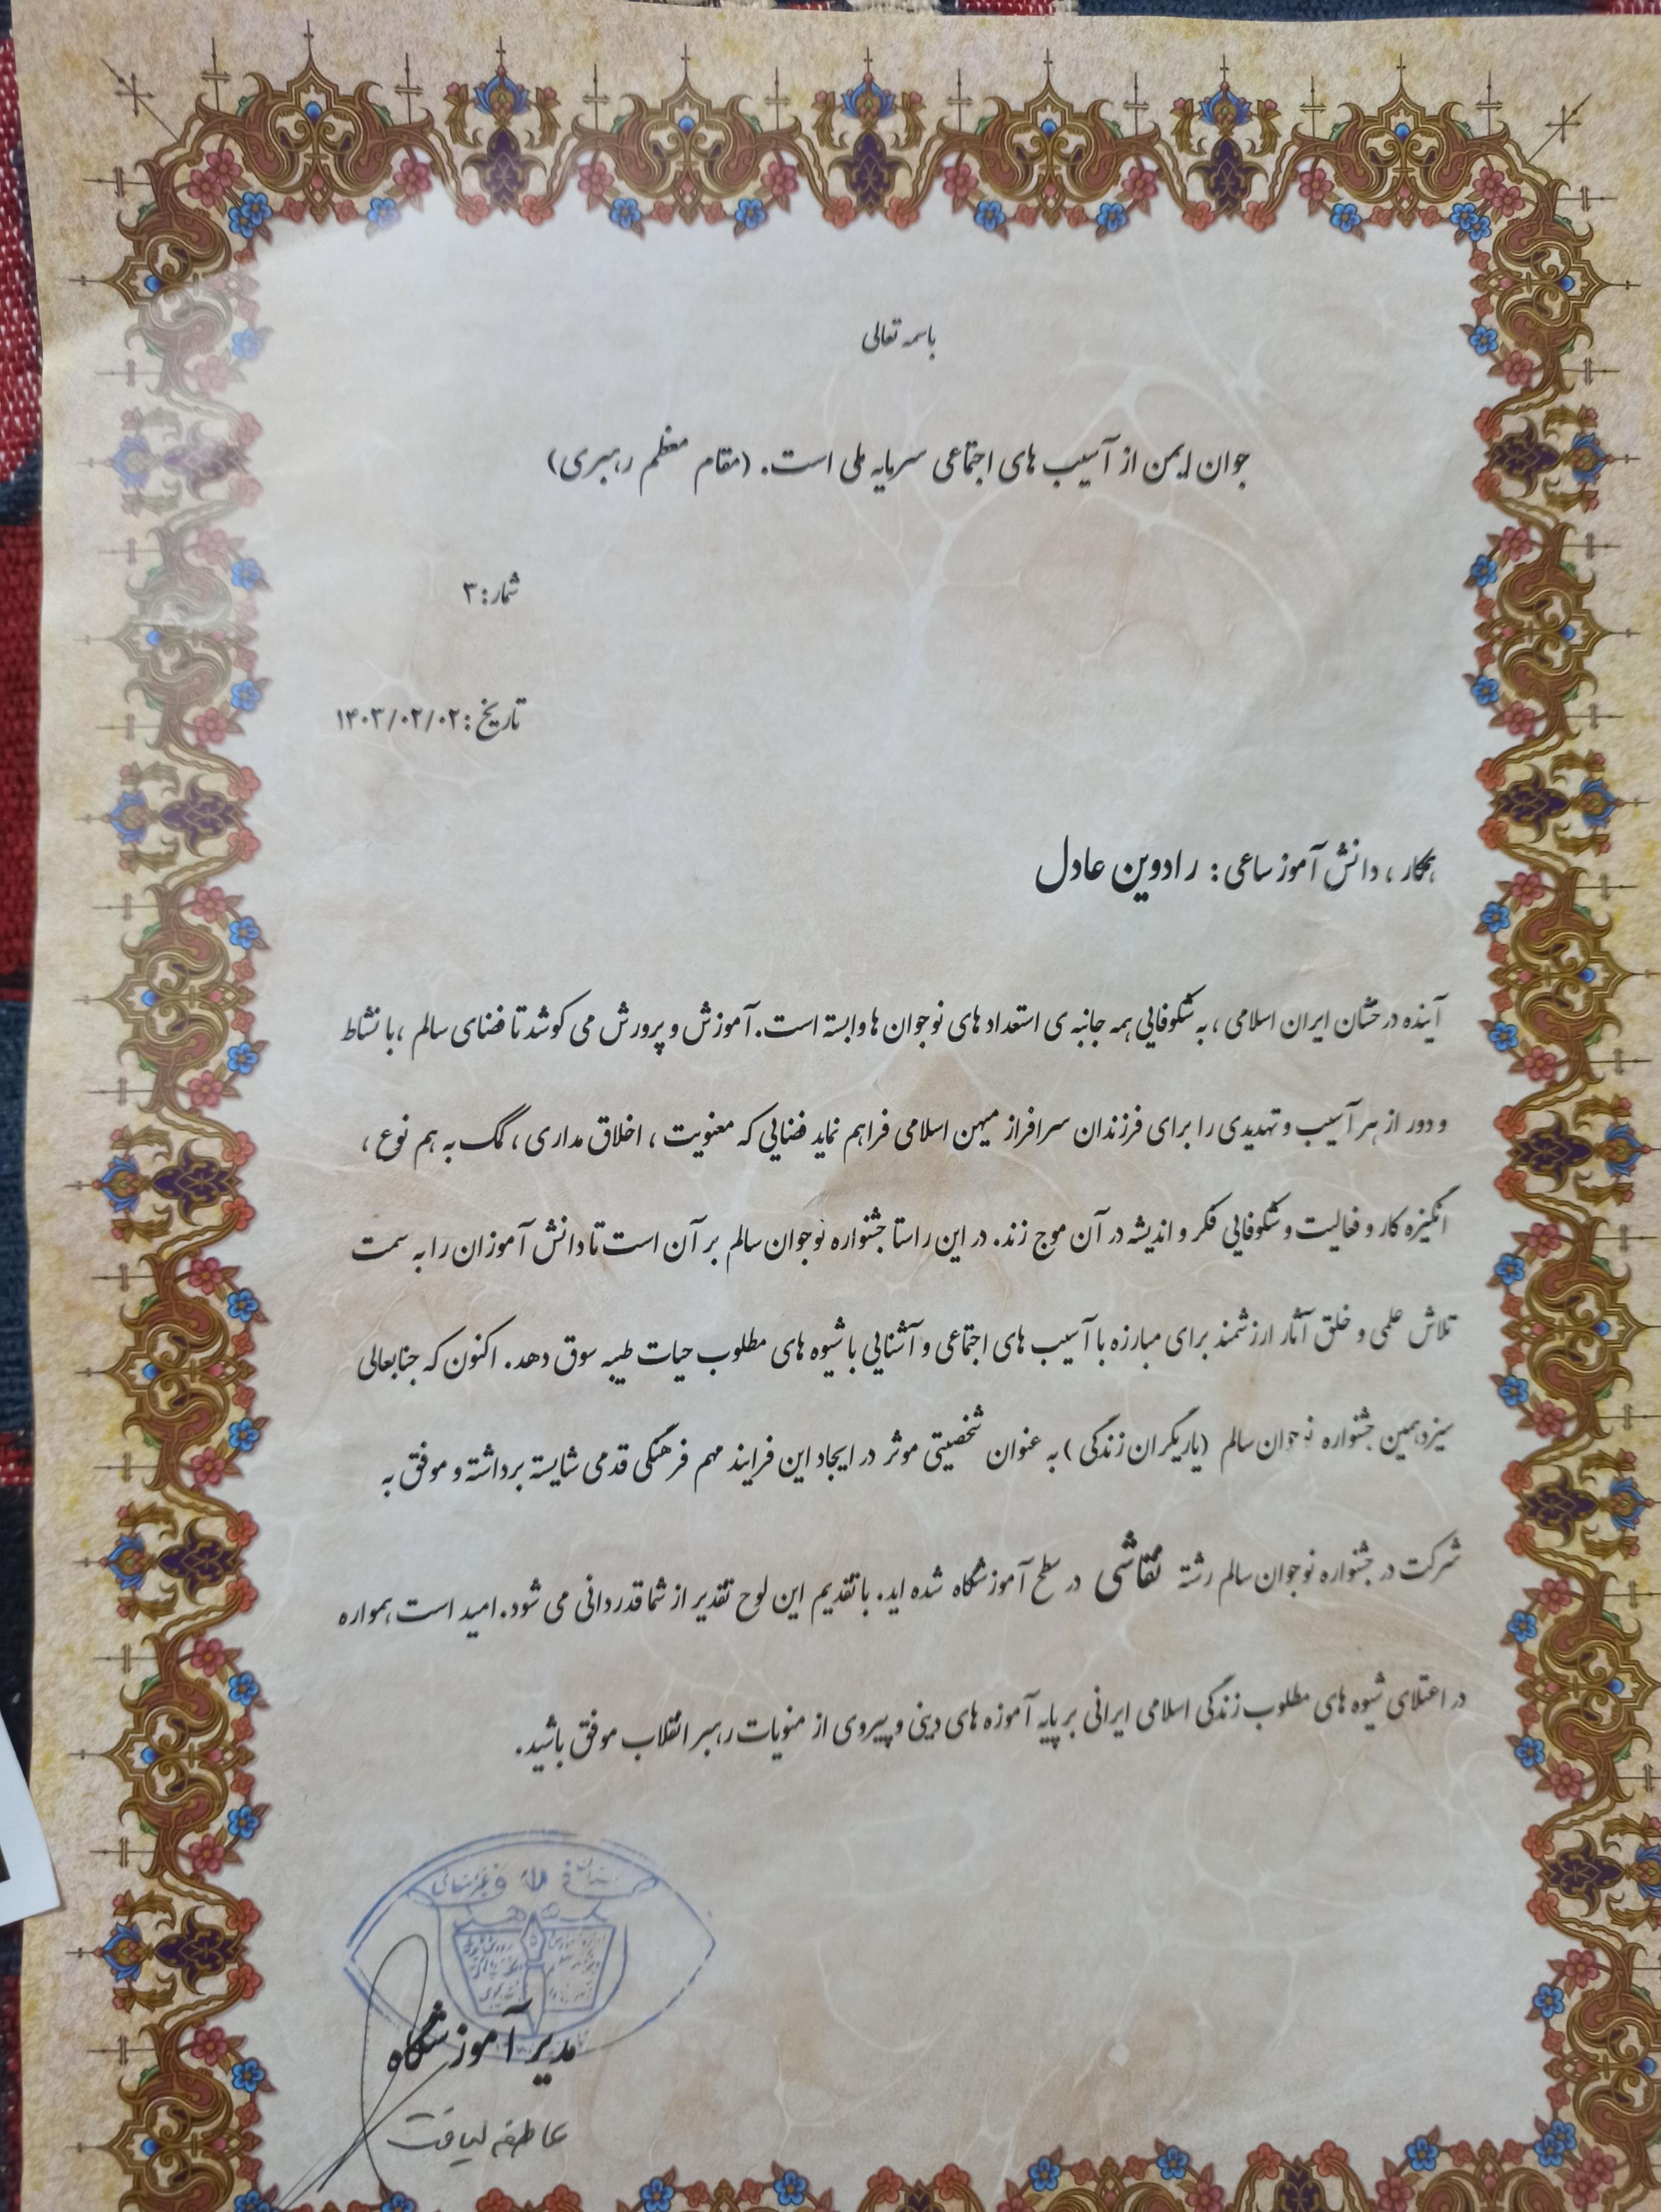 باسمه تعالی
جوان ایمن از آسیب های اجتماعی سرمایه ملی است. (مقام معظم رهبری)
شمار: ۳
تاریخ: ۱۴۰۳/۰۲/۰۲
همکار، دانش آموز ساعی: رادوین عادل
آینده درخشان ایران اسلامی، به شکوفایی همه جانبه ی استعداد های نوجوان ها وابسته است. آموزش و پرورش می کوشد تا فضای سالم، با نشاط
و دور از هر آسیب و تهدیدی را برای فرزندان سرافراز میهن اسلامی فراهم نماید فضایی که معنویت، اخلاق مداری، کمک به هم نوع،
انگیزه کار و فعالیت و شکوفایی فکر و اندیشه در آن موج زند. در این راستا جشنواره نوجوان سالم بر آن است تا دانش آموزان را به سمت
تلاش علمی و خلق آثار ارزشمند برای مبارزه با آسیب های اجتماعی و آشنایی با شیوه های مطلوب حیات طیبه سوق دهد. اکنون که جنابعالی
سیزدهمین جشنواره نوجوان سالم (یاریگران زندگی) به عنوان شخصیتی موثر در ایجاد این فرایند مهم فرهنگی قدمی شایسته برداشته و موفق به
شرکت در جشنواره نوجوان سالم رشته نقاشی در سطح آموزشگاه شده اید. با تقدیم این لوح تقدیر از شما قدردانی می شود. امید است همواره
در اعتلای شیوه های مطلوب زندگی اسلامی ایرانی بر پایه آموزه های دینی و پیروی از منویات رهبر انقلاب موفق باشید.
مدیر آموزشگاه
عاطفه لیاقت